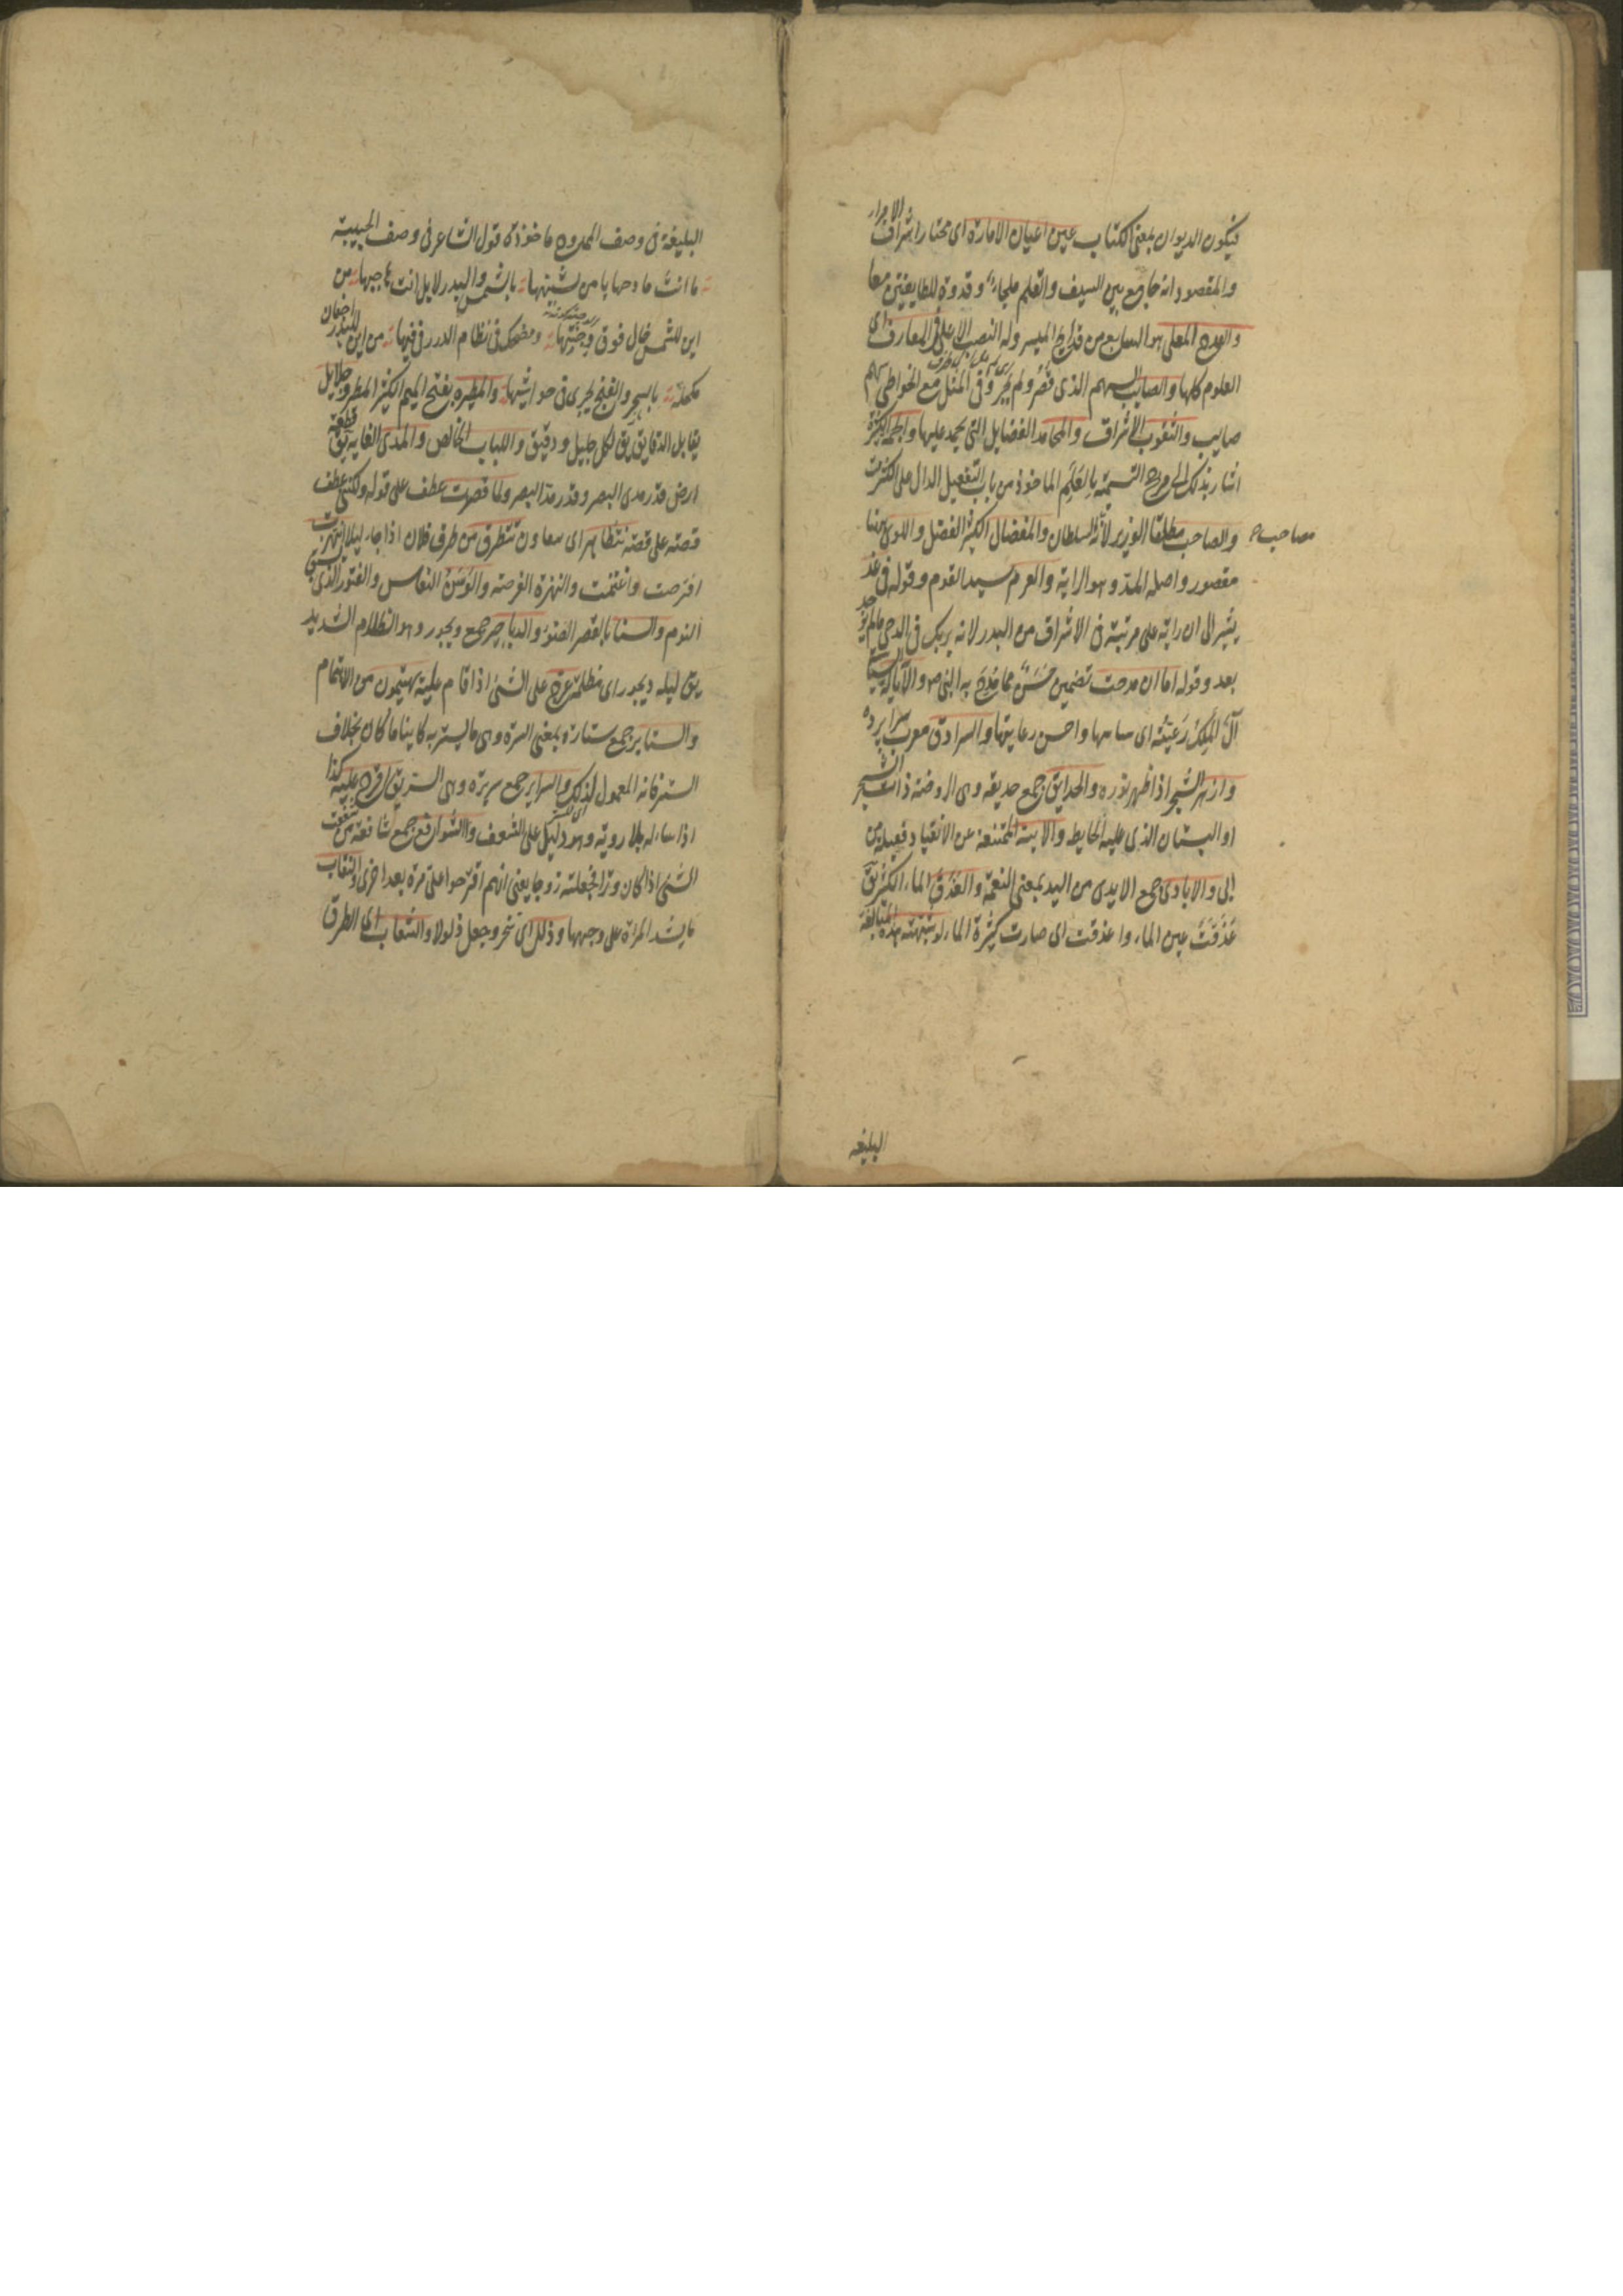 فيكون الديوان بمعنى الكتاب عين اعيان الامارة اى مختار اشراف الامراء
والمقصود انه جامع بين السيف والقلم ملجاء وقدوة للطايفتين معا
والقدح المعلى هو السابع من قداح الميسر وله النصيب الاعلى فى المعارف اى
العلوم كلها والصايب السهم الذى قصر ولم يجر وفى المثل مع الخواطى سهم
صايب والثقوب الاشراق والمحامد الفضايل التى يحمد عليها والجمة الكثيرة
اشار بذلك الى مدح التسمية بالعلم الماخوذ من باب التفعيل الدال على الكثرت
والصاحب مطلقا الوزير لأنه السلطان والمفضال الكثير الفضل واللوى هنا
مصاحب
مقصور واصله المد وهو الراية والعرم سيد القوم وقوله فى غد
يشير الى ان رايه على مرتبة فى الاشراق من البدر لانه يريك فى الدجى مالم يوجد
بعد وقوله اما ان مدحت تضمين حسن مما مدح به النبى ص والآيالة السياسة
آل الملك رعيته اى ساسها واحسن رعايتها والسرادق معرب سرا پرده
وازهر الشجر اذا ظهر نوره والحدايق جمع حديقة وهى الروضة ذات الشجر
او البستان الذى عليه الحايط والابية الممتنعة عن الانقياد فعيلة من
ابى والايادى جمع الايدى من اليد بمعنى النعمة والغدق الماء الكثير يق
غدقت عين الماء واغدقت اى صارت كثيرة الماء لو شبهته هذه المبالغة
البليغة
البليغة فى وصف الممدوح ماخوذة قول الشاعر فى وصف الحبيبة
ما انت مادحها يا من تشبهها بالشمس والبدر لا بل انت هاجيها من
اين للشمس خال فوق وجنتها ومضحك فى نظام الدر فى فيها من اين للبدر اجفان
مكحلة بالسحر والغنج يجرى فى حواشيها والمطيره بفتح الميم الكثيرالمطر وجلايل
يقابل الدقايق يق لكل جليل ودقيق واللباب الخالص والمدى الغاية يق قطعة
ارض قدر مدى البصر وقدر مد البصر ولما قصرت عطف على قوله ولكنى عطف
قصة على قصة نتظاهر اى نتعاون تتطرق من طرق فلان اذا جاء ليلا انتهزت
افترصت واغتنمت والنهزة الفرصة والوسنة النعاس والفتور الذى يسبق
النوم والسنا بالقصر الضوء والدياجر جمع ديجور وهو الظلام الشديد
يق ليلة ديجور اى مظلمة عرج على الشئ اذا قام عليه يهتمون من الاهتمام
والستاير جمع ستارة بمعنى السترة وهى ما يستر به كاينا ما كان بخلاف
الستر فانه المعمول لذلك والسراير جمع سريرة وهى السر يق اقترح عليه كذا
اذا ساله بلا روية وهو دليل على الشعف والشوافع جمع شافعة من شفعت
الشئ اذا كان وترا فجعلته زوجا يعنى انهم اقترحوا على مرة بعد اخرى والنقاب
ما يشد المراة على وجهها وذلل اى سخر وجعل ذلولا والشعاب اى الطرق